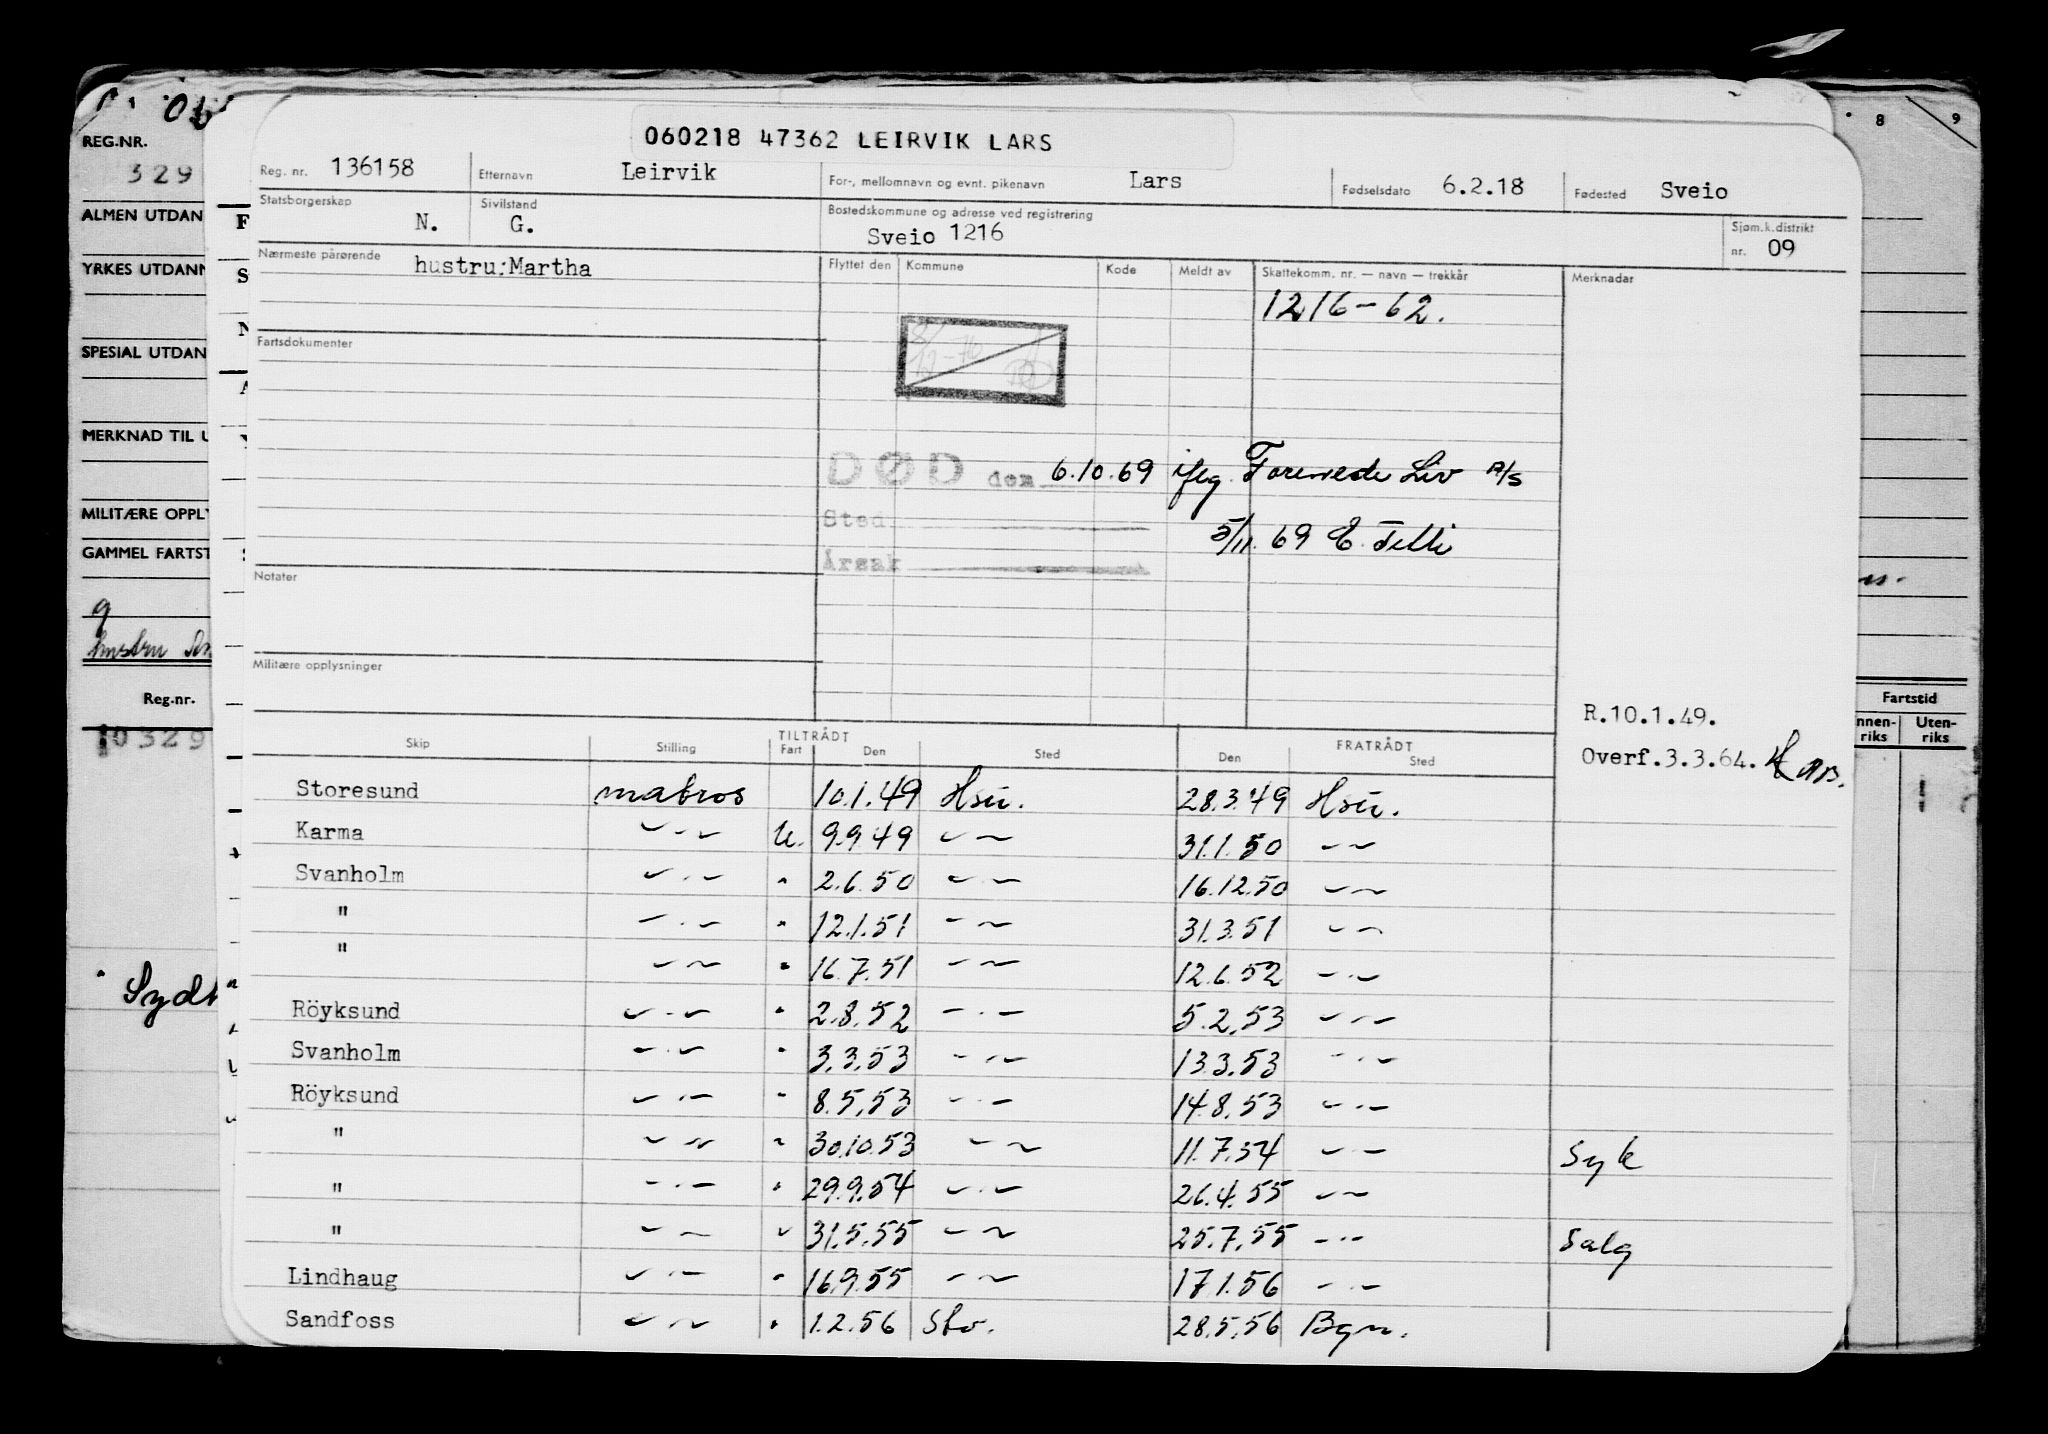 060218 47362 LEIRVIK LARS
Reg. nr. 136158 Etternavn Leirvik For-, mellomnavn og evnt. pikenavn Lars Fødselsdato 6.2.18 Fødested Sveio
Statsborgerskap N. Sivilstand G. Bostedskommune og adresse ved registrering Sveio 1216 Sjøm.k.distrikt nr. 09
Nærmeste pårørende hustru:Martha Flyttet den Kommune Kode Meldt av Skattekomm. nr. — navn — trekkår Merknadar
1216-62.
Fartsdokumenter
DØD den 6.10.69 iflg. Forenede Liv A/S
Sted 5/11.69 E.
Årsak
Notater
Militære opplysninger
R.10.1.49.
Overf.3.3.64.
TILTRÅDT FRATRÅDT
Skip Stilling Fart Den Sted Den Sted
Storesund matros 10.1.49 Hsu. 28.3.49 Hsu.
Karma —"— U. 9.9.49 —"— 31.1.50 —"—
Svanholm —"— " 2.6.50 —"— 16.12.50 —"—
" —"— " 12.1.51 —"— 31.3.51 —"—
" —"— " 16.7.51 —"— 12.6.52 —"—
Röyksund —"— " 2.8.52 —"— 5.2.53 —"—
Svanholm —"— " 3.3.53 —"— 13.3.53 —"—
Röyksund —"— " 8.5.53 —"— 14.8.53 —"—
" —"— " 30.10.53 —"— 11.7.54 —"— Syk
" —"— " 29.9.54 —"— 26.4.55 —"—
" —"— " 31.5.55 —"— 25.7.55 —"— Salg
Lindhaug —"— " 16.9.55 —"— 17.1.56 —"—
Sandfoss —"— " 1.2.56 Sto. 28.5.56 Bgn.
REG.NR.
329
ALMEN UTDAN
YRKES UTDANN
SPESIAL UTDAN
MERKNAD TIL U
MILITÆRE OPPLY
GAMMEL FARTST
9
hustru
Reg.nr.
0329
8 9
Fartstid
nnen-riks Uten-riks